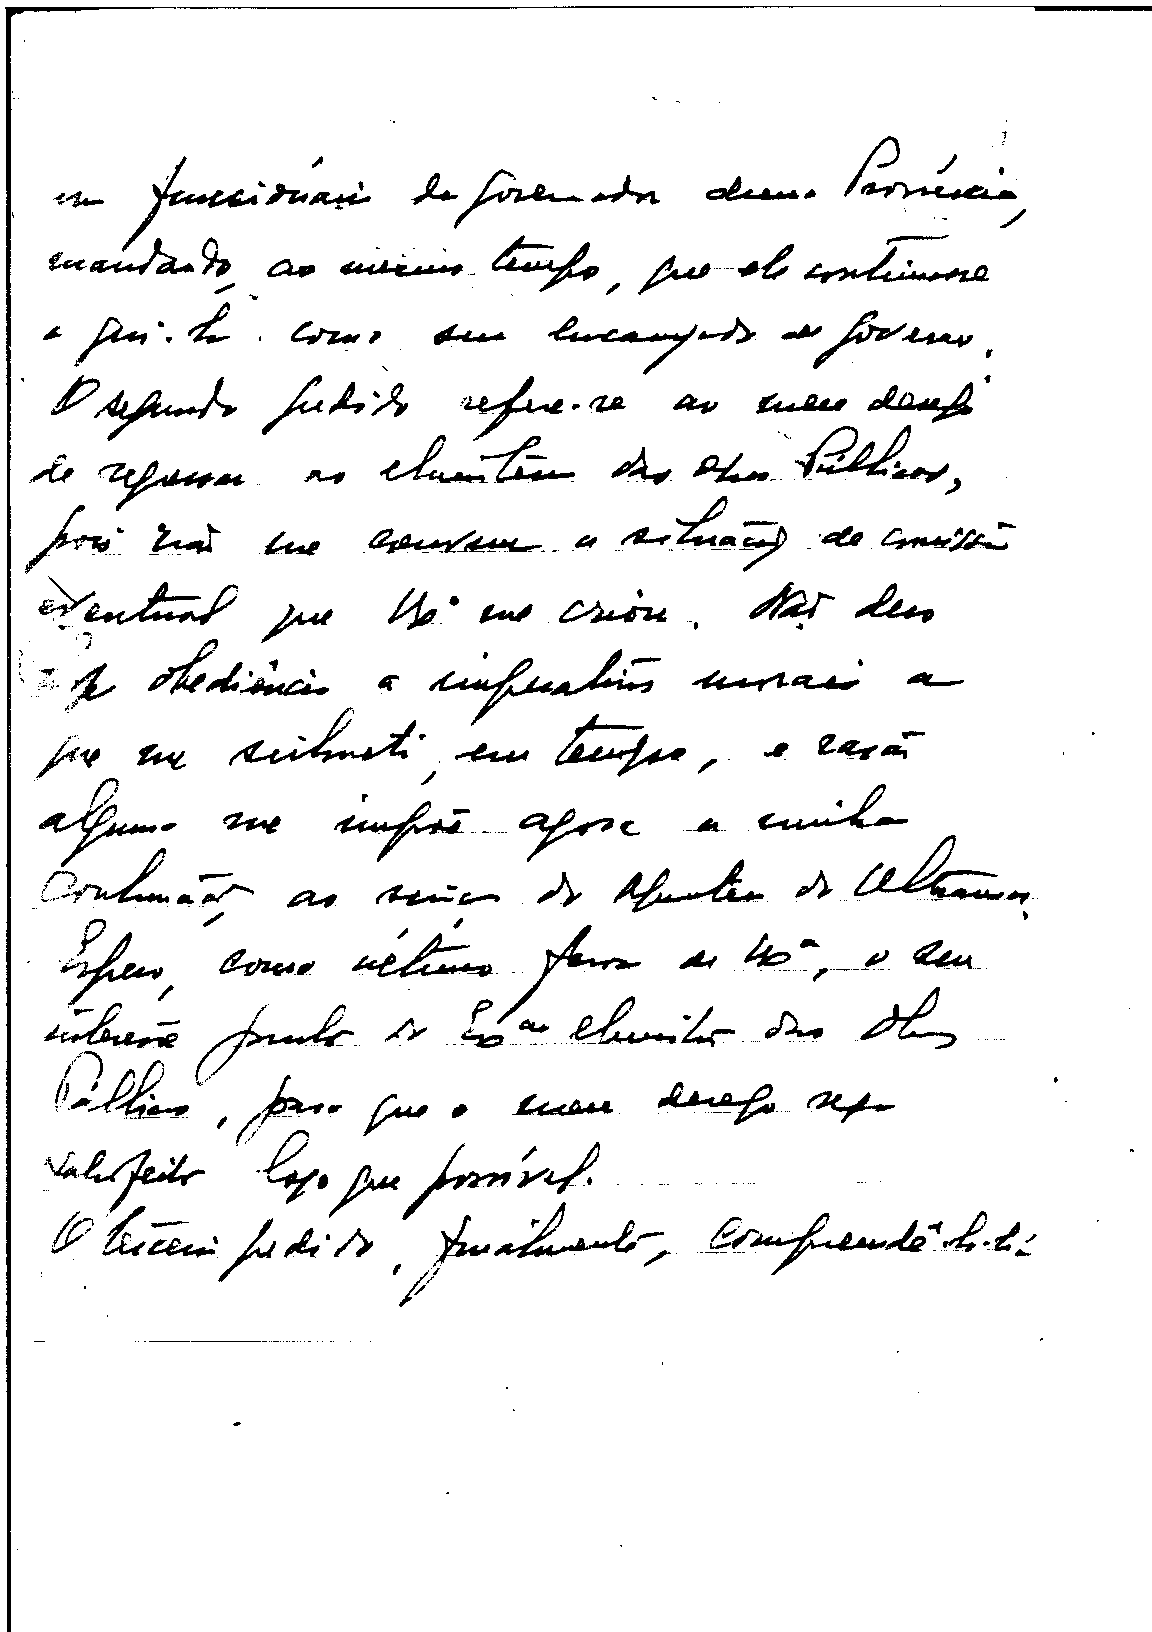 um funcionário de Governador duma Província,
mandando, ao mesmo tempo, que ele continuasse
a geri-la como seu encarregado de Governo.
O segundo pedido refere-se ao meu desejo
de regressar ao Ministério das Obras Públicas,
pois não me convém a situação de comissão
eventual que V. Exª me criou. Não devo
hoje obediência a imperativos morais a
que me submeti, em tempo, e razão
alguma me impõe agora a minha
continuação ao serviço do do Ultramar.
Espero, como último favor de V. Exª, o seu
interesse junto do Exmo Ministro das Obras
Públicas, para que o meu desejo seja
satisfeito logo que possível.
O terceiro pedido, finalmente, compreendê-lo-á